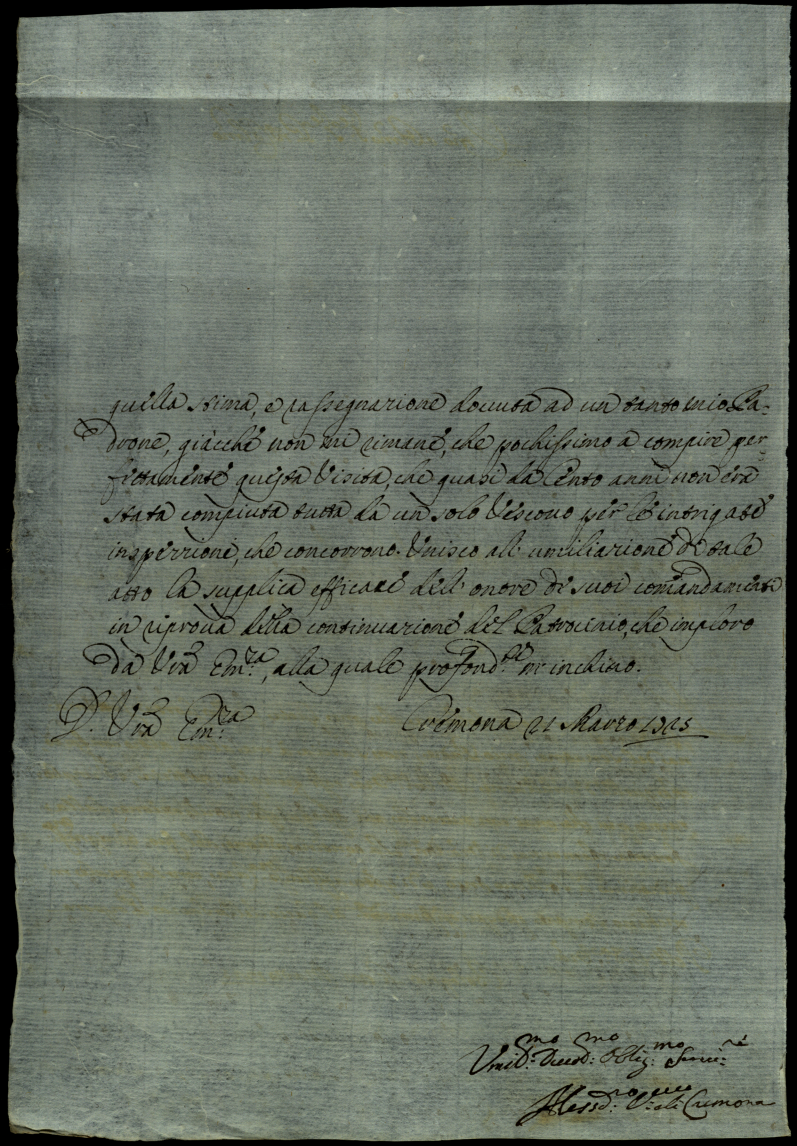 quella stima, e rassegnazione douuta ad un tanto mio Pa-
drone, giacchè non mi rimane, che pochissimo à compire per-
fettamente questa Visita, che quasi da Cento anni non era
stata compiuta tutta da un solo Vescouo per le intrigate
inspezzioni, che concorrono. Vnisco all' umiliazione di tale
atto la supplica efficace dell' onore di suoi comandamenti
in riproua della continuazione del Patrocinio, che imploro
da Vrã Em.za, alla quale profond.te m' inchino.
D. Vrã Em.za Cremona 21 Marzo
Vmil.mo Deuot.mo Oblig.mo Seruit.re
Aless.dro Vesc. di Cremona